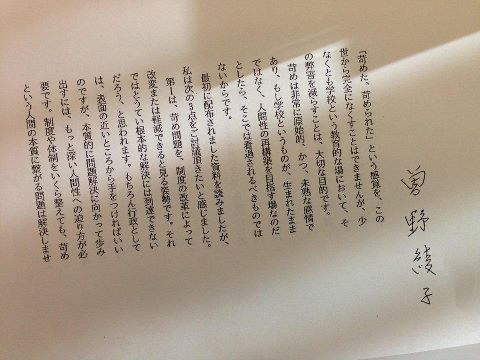 曽野綾子
「苛めた、苛められた」という感覚を、この
世から完全になくすことはできませんが、少
なくとも学校という教育的な場において、そ
の弊害を減らすことは、大切な目的です。
苛めは非常に原始的、かつ、未熟な感情で
あり、もし学校というものが、生まれたまま
ではなく、人間性の再構築を目指す場なのだ
としたら、そこでは看過されるべきものでは
ないからです。
最初に配布されました資料を読みましたが、
私は次の5点をご討議頂きたいと感じました。
第1は、苛め問題を、制度の改革によって
改変または軽減できると見る姿勢です。それ
ではとうてい根本的な解決には到達できない
だろう、と思われます。もちろん行政として
は、表面の近いところから手をつければいい
のですが、本質的に問題解決に向かって歩み
出すには、もっと深い人間性への迫り方が必
要です。制度や体制をいくら整えても、苛め
という人間の本質に繋がる問題は解決しませ